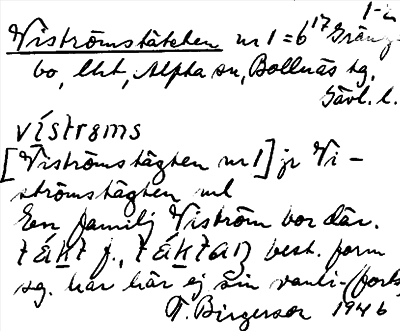 1-2
Viströmstäkten nr 1 = 6¹⁷ Gräng-
bo, lht, Alfta sn, Bollnäs tg.
Gävl. l.
vístrɵms
[Viströmstägten nr 1] jr Vi-
strömstägten uel
En familj Viström bor där.
tákt f., táktan best. form
sg. har här ej sin vanli- (forts
T. Birgerson 1946